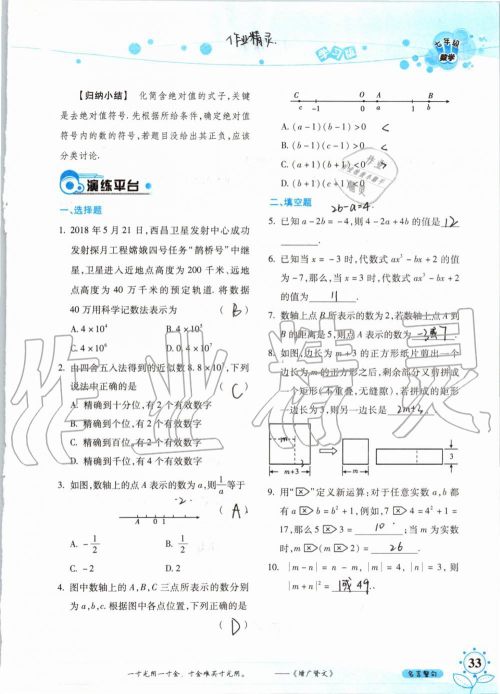 作业精灵
学习版
七年级
数学
【归纳小结】 化简含绝对值的式子,关键
是去绝对值符号.先根据所给条件,确定绝对值
符号内的数的符号,若题目没给出其正负,应该
分类讨论.
演练平台
一、选择题
1. 2018年5月21日,西昌卫星发射中心成功
发射探月工程嫦娥四号任务“鹊桥号”中继
星,卫星进入近地点高度为200千米,远地
点高度为40万千米的预定轨道.将数据
40万用科学记数法表示为 ( B )
A. 4×10⁴ B. 4×10⁵
C. 4×10⁶ D. 0.4×10⁷
2. 由四舍五入法得到的近似数8.8×10³,下列
说法中正确的是 ( C )
A. 精确到十分位,有2个有效数字
B. 精确到个位,有2个有效数字
C. 精确到百位,有2个有效数字
D. 精确到千位,有4个有效数字
3. 如图,数轴上的点A表示的数为a,则1/a等于
-2. ( A )
A 0 1
A. -1/2 B. 1/2
C. -2 D. 2
4. 图中数轴上的A,B,C三点所表示的数分别
为a,b,c.根据图中各点位置,下列正确的是
( D )
C O A B
c -1 0 a 1 b
A. (a-1)(b-1)>0
B. (b-1)(c-1)>0
C. (a+1)(b+1)<0
D. (b+1)(c+1)<0
二、填空题 2b-a=4.
5. 已知a-2b=-4,则4-2a+4b的值是 12
6. 已知当x=-3时,代数式ax³-bx+2的值
为-7,那么,当x=3时,代数式ax³-bx+2
的值为 11 .
7. 数轴上点B所表示的数为2,若数轴上点A到
B的距离是5,则点A表示的数为 -3或7
8. 如图,边长为m+3的正方形纸片剪出一个
边长为m的正方形之后,剩余部分又剪拼成
一个矩形(不重叠,无缝隙),若拼成的矩形
一边长为3,则另一边长是 2m+3 .
m
m+3
3
9. 用“☒”定义新运算:对于任意实数a,b都
有a☒b=b²+1,例如,7☒4=4²+1=
17,那么5☒3= 10 ;当m为实数
时,m☒(m☒2)= 26 .
10. |m-n|=n-m,|m|=4,|n|=3,则
|m+n|²= 1或49 .
一寸光阴一寸金,寸金难买寸光阴。 ——《增广贤文》
名言警句
33
作业精灵